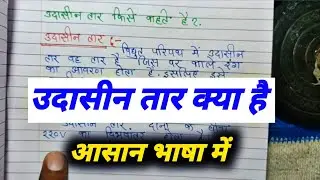 उदासीन तार किसे कहते है ?
उदासीन तार :-
विद्युत परिपथ में उदासीन
तार वह तार है जिस पर काले रंग
का आवरण होता है। इसलिए इसे
उदासीन तार क्या है
उदासीन तार दोनों के
220V का विभवांतर होता
आसान भाषा में